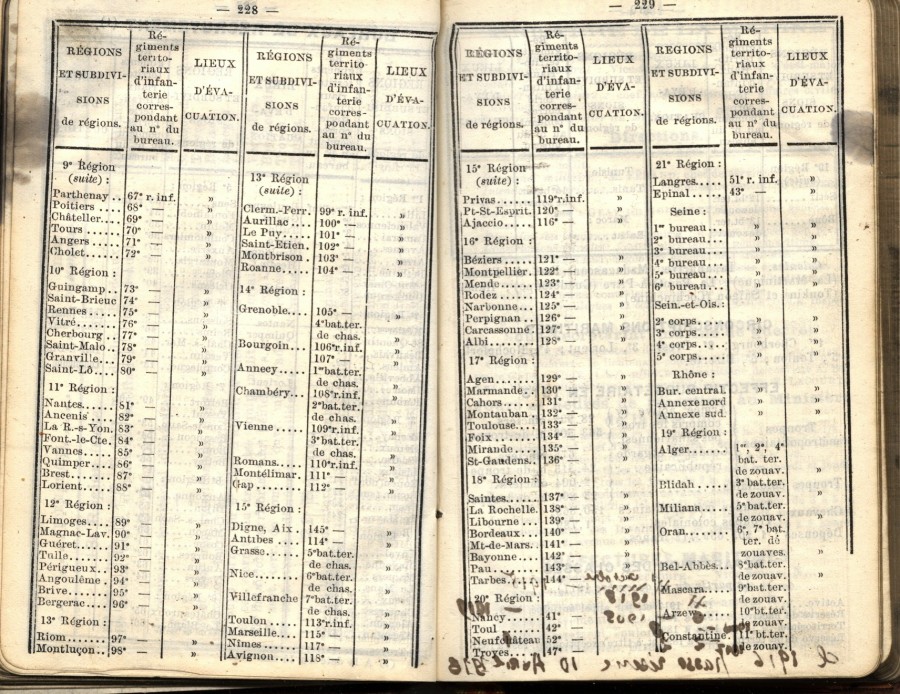 — 228 —
RÉGIONS
ET SUBDIVI-
SIONS
de régions.
Ré-
giments
territo-
riaux
d'infan-
terie
corres-
pondant
au n° du
bureau.
LIEUX
D'ÉVA-
CUATION.
9e Région
(suite) :
Parthenay .. 67e r. inf. »
Poitiers .... 68e — »
Châteller.... 69e — »
Tours ...... 70e — »
Angers ..... 71e — »
Cholet ...... 72e — »
10e Région :
Guingamp .. 73e — »
Saint-Brieuc 74e — »
Rennes ..... 75e — »
Vitré....... 76e — »
Cherbourg .. 77e — »
Saint-Malo.. 78e — »
Granville... 79e — »
Saint-Lô.... 80e — »
11e Région :
Nantes..... 81e — »
Ancenis .... 82e — »
La R.-s-Yon. 83e — »
Font.-le-Cte. 84e — »
Vannes..... 85e — »
Quimper.... 86e — »
Brest....... 87e — »
Lorient..... 88e — »
12e Région :
Limoges.... 89e — »
Magnac-Lav. 90e — »
Guéret..... 91e — »
Tulle....... 92e — »
Périgueux.. 93e — »
Angoulême . 94e — »
Brive....... 95e — »
Bergerac... 96e — »
13e Région :
Riom....... 97e — »
Montluçon.. 98e — »
RÉGIONS
ET SUBDIVI-
SIONS
de régions.
Ré-
giments
territo-
riaux
d'infan-
terie
corres-
pondant
au n° du
bureau.
LIEUX
D'ÉVA-
CUATION.
13e Région
(suite) :
Clerm.-Ferr. 99e r. inf. »
Aurillac .... 100e — »
Le Puy..... 101e — »
Saint-Etien. 102e — »
Montbrison . 103e — »
Roanne..... 104e — »
14e Région :
Grenoble.... 105e — »
4e bat. ter.
Bourgoin... 106e r. inf. »
107e —
Annecy .... 1er bat. ter. »
de chas.
Chambéry... 108e r. inf. »
2e bat. ter.
de chas.
Vienne ..... 109e r. inf. »
3e bat. ter.
de chas.
Romans.... 110e r. inf. »
Montélimar. 111e — »
Gap ........ 112e — »
15e Région :
Digne, Aix . 145e — »
Antibes .... 114e — »
Grasse..... 5e bat. ter. »
de chas.
Nice........ 6e bat. ter. »
de chas.
Villefranche 7e bat. ter. »
de chas.
Toulon..... 113e r. inf. »
Marseille... 115e — »
Nîmes ..... 117e — »
Avignon.... 118e — »
— 229 —
RÉGIONS
ET SUBDIVI-
SIONS
de régions.
Ré-
giments
territo-
riaux
d'infan-
terie
corres-
pondant
au n° du
bureau.
LIEUX
D'ÉVA-
CUATION.
15e Région
(suite) :
Privas...... 119e r. inf. »
Pt-St-Esprit. 120e — »
Ajaccio..... 116e — »
16e Région :
Béziers..... 121e — »
Montpellier. 122e — »
Mende...... 123e — »
Rodez...... 124e — »
Narbonne... 125e — »
Perpignan .. 126e — »
Carcassonne. 127e — »
Albi........ 128e — »
17e Région :
Agen....... 129e — »
Marmande.. 130e — »
Cahors..... 131e — »
Montauban . 132e — »
Toulouse... 133e — »
Foix ....... 134e — »
Mirande.... 135e — »
St-Gaudens.. 136e — »
18e Région :
Saintes..... 137e — »
La Rochelle. 138e — »
Libourne ... 139e — »
Bordeaux .. 140e — »
Mt-de-Mars.. 141e — »
Bayonne.... 142e — »
Pau........ 143e — »
Tarbes..... 144e —
20e Région :
Nancy...... 41e —
Toul ....... 42e —
Neufchâteau 52e —
Troyes..... 47e —
REGIONS
ET SUBDIVI-
SIONS
de régions.
Ré-
giments
territo-
riaux
d'infan-
terie
corres-
pondant
au n° du
bureau.
LIEUX
D'ÉVA-
CUATION.
21e Région :
Langres..... 51e r. inf. »
Epinal ..... 43e — »
Seine :
1er bureau... » »
2e bureau... » »
3e bureau... » »
4e bureau... » »
5e bureau... » »
6e bureau... » »
Sein.-et-Ois.:
2e corps.... » »
3e corps.... » »
4e corps.... » »
5e corps.... » »
Rhône :
Bur. central. » »
Annexe nord » »
Annexe sud. » »
19e Région :
Alger....... 1er, 2e, 4e
bat. ter.
de zouav. »
Blidah ..... 3e bat. ter.
de zouav. »
Miliana..... 5e bat. ter.
de zouav. »
Oran........ 6e, 7e bat.
ter. de
zouaves. »
Bel-Abbès... 8e bat. ter.
de zouav. »
Mascara.... 9e bat. ter.
de zouav. »
Arzew...... 10e bt. ter.
de zouav. »
Constantine. 11e bt. ter.
de zouav. »